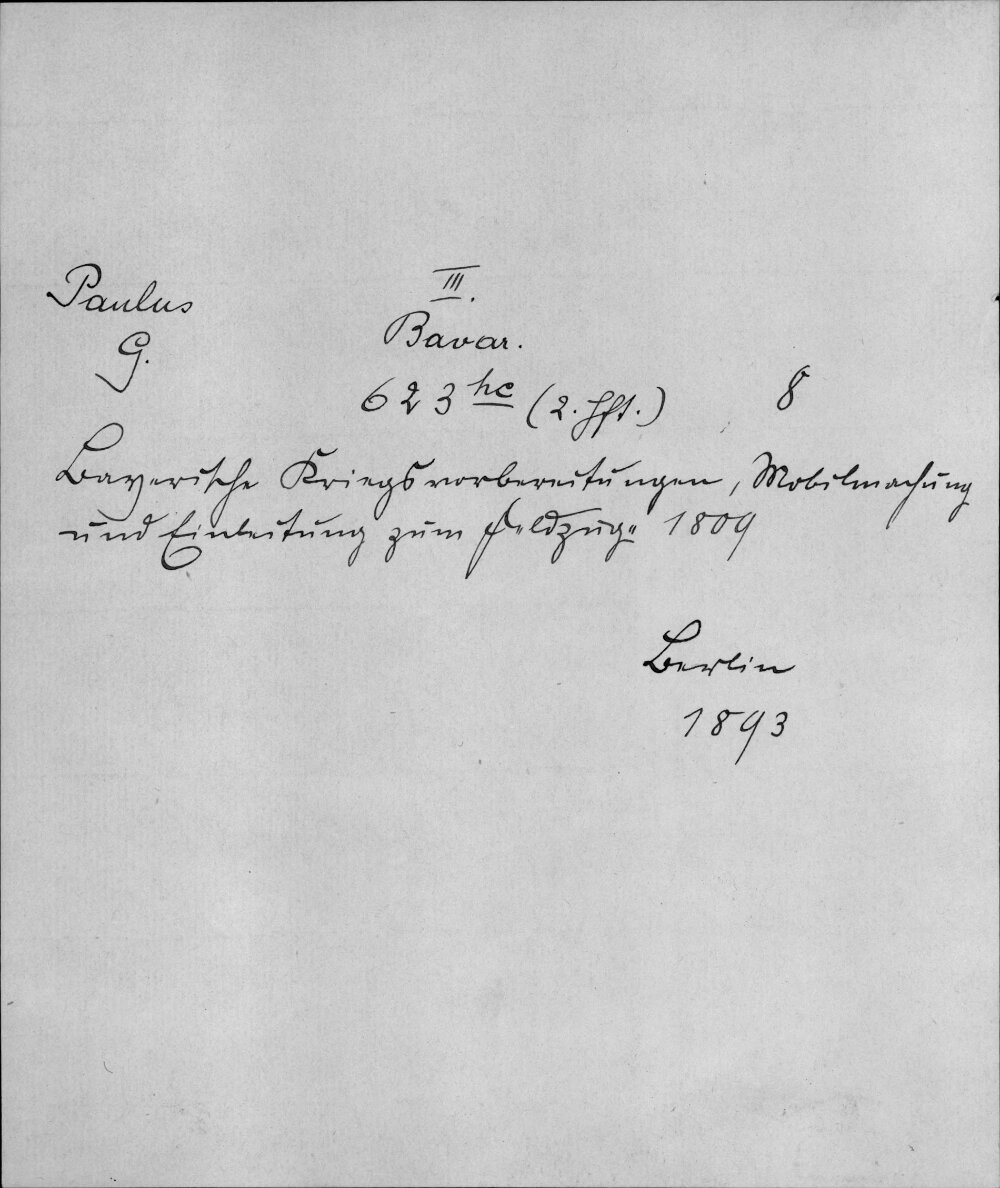 Paulus
G.
III.
Bavar.
623 hc (2. Hft.) 8
Bayerische Kriegsvorbereitungen, Mobilmachung
und Einleitung zum Feldzuge 1809
Berlin
1893